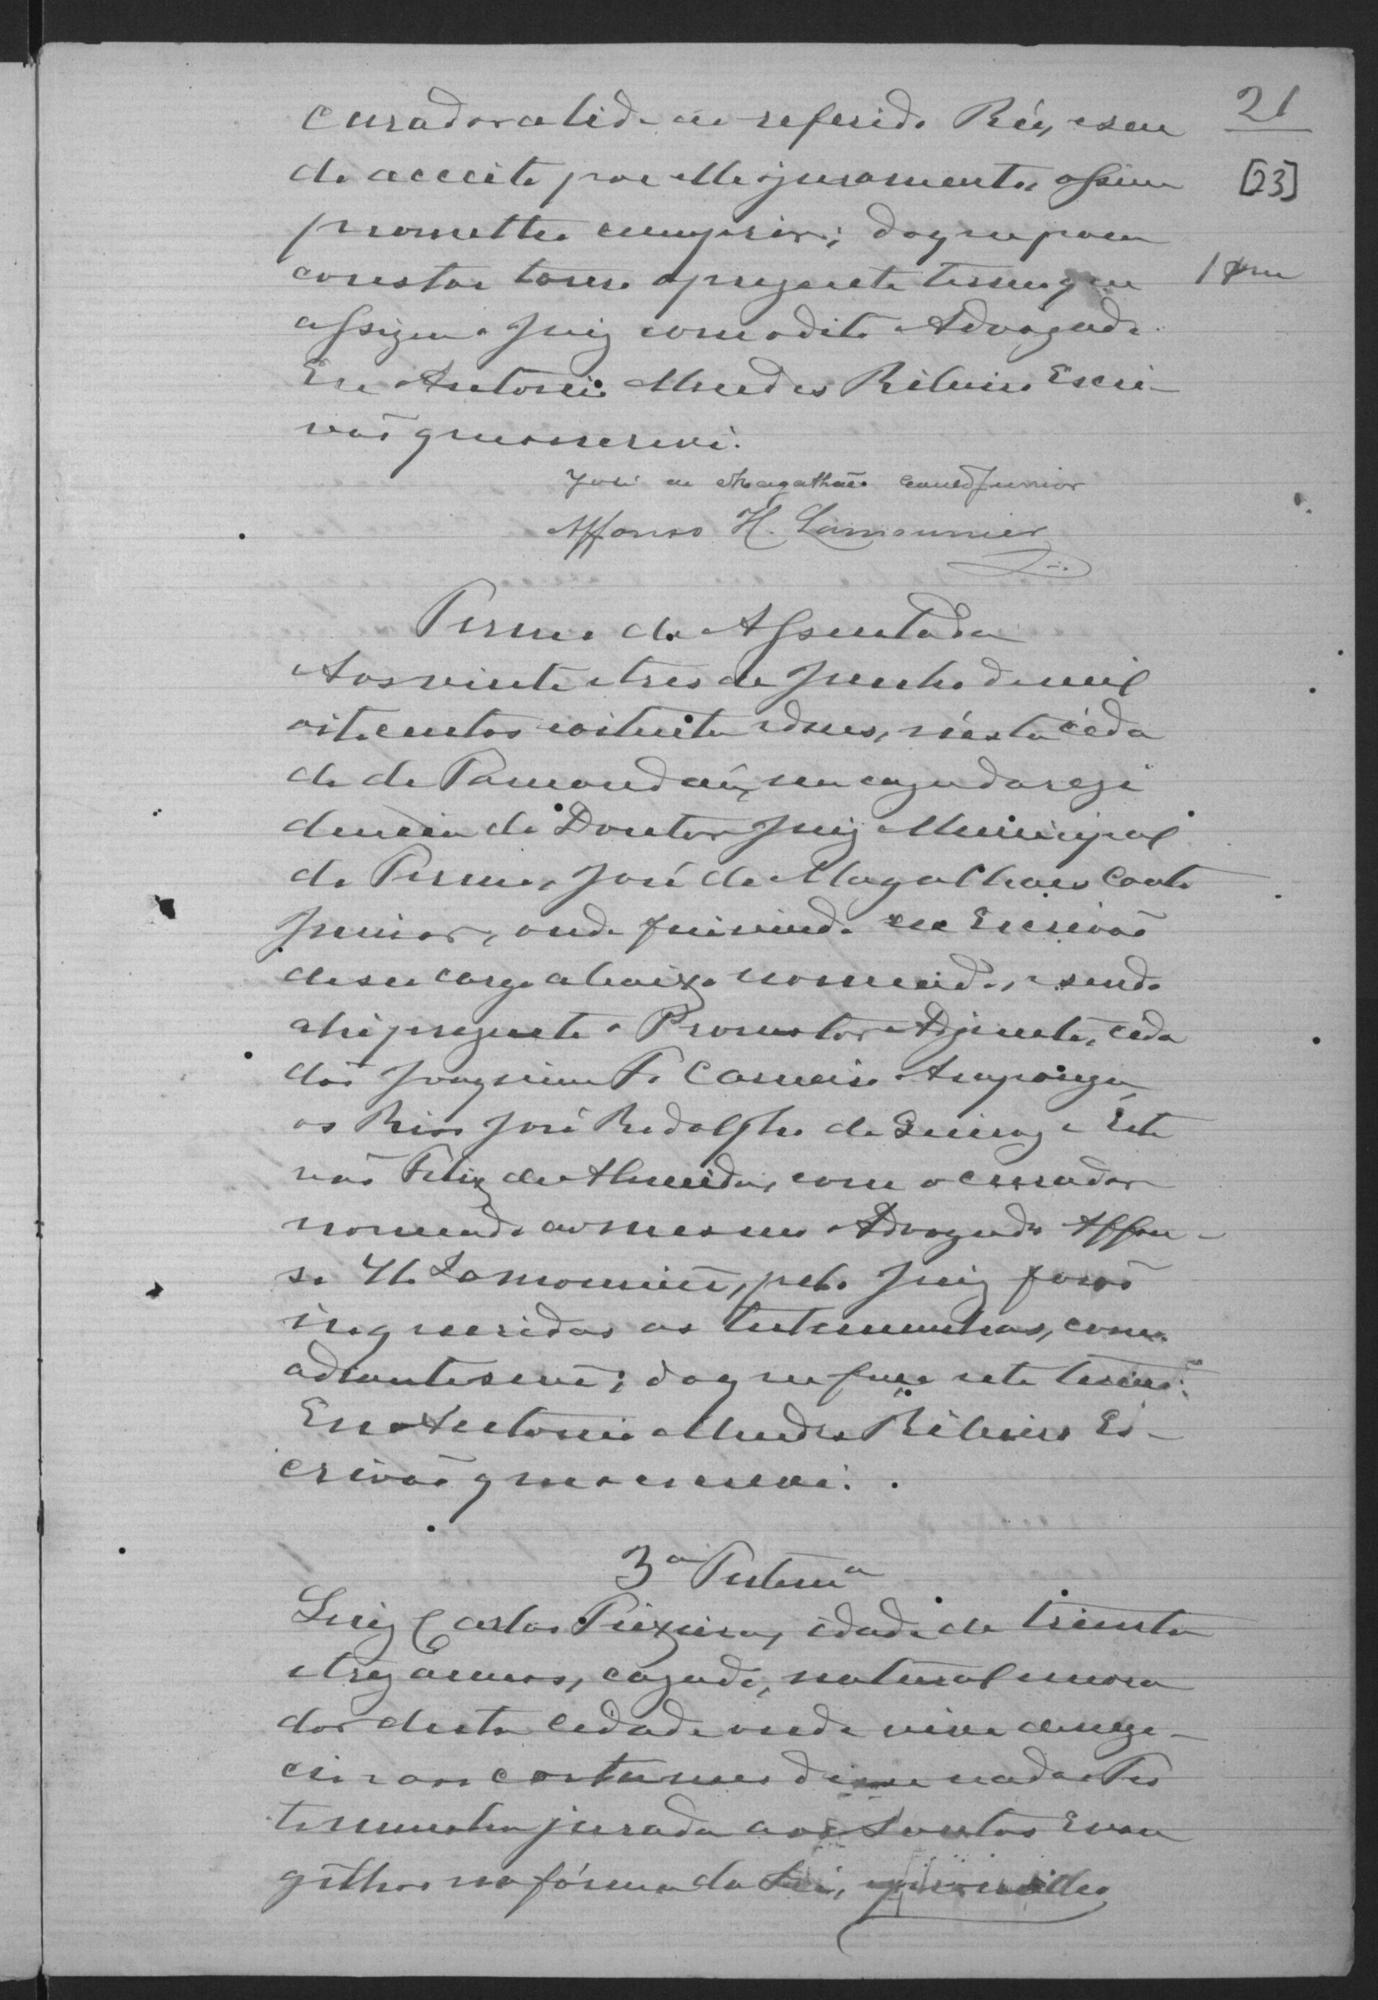 21
[23]
curador a lide ao referido Réu, e sen
do acceito por elle o juramento, assim
prometteo cumprir; do que para
constar lavro o prezente termo que
assigna o Juiz com o dito Advogado.
Eu Antonio Mendes Ribeiro Escri-
vaõ que o escrevi.
José de Magalhães Couto Junior
Affonso H. Lamounier
Termo de Assentada
Aos vinte e tres de Junho de mil
oitocentos e oitenta e dous, n'ésta cida
de de Tamanduá, em caza da rezi
dencia do Doutor Juiz Municipal
do Termo, José de Magalhaes Couto
Junior, onde fui vindo eu Escrivaõ
de seu cargo abaixo nomeiado, e sendo
ahi prezente o Promotor Adjunto, cida
daõ Joaquim F. Carneiro
os Reos José Rodolpho de Queiroz e Este
vaõ Feliz de Almeida, com o curador
nomeado ao mesmo Advogado Affon-
so H. Lamounier, pelo Juiz foraõ
inqueridas as testemunhas, como
adiante se vê; do que faço este termo.
Eu Antonio Mendes Ribeiro Es-
crivaõ que o escrevi.
3ª Testemª
Luiz Carlos Teixeira, idade de trinta
e trez annos, cazado, natural e mora
dor desta Cidade onde vive de nego-
cio e aos costumes disse nada. Tes
temunha jurada aos Santos Evan
gelhos na fórma da Lei, e prometteo